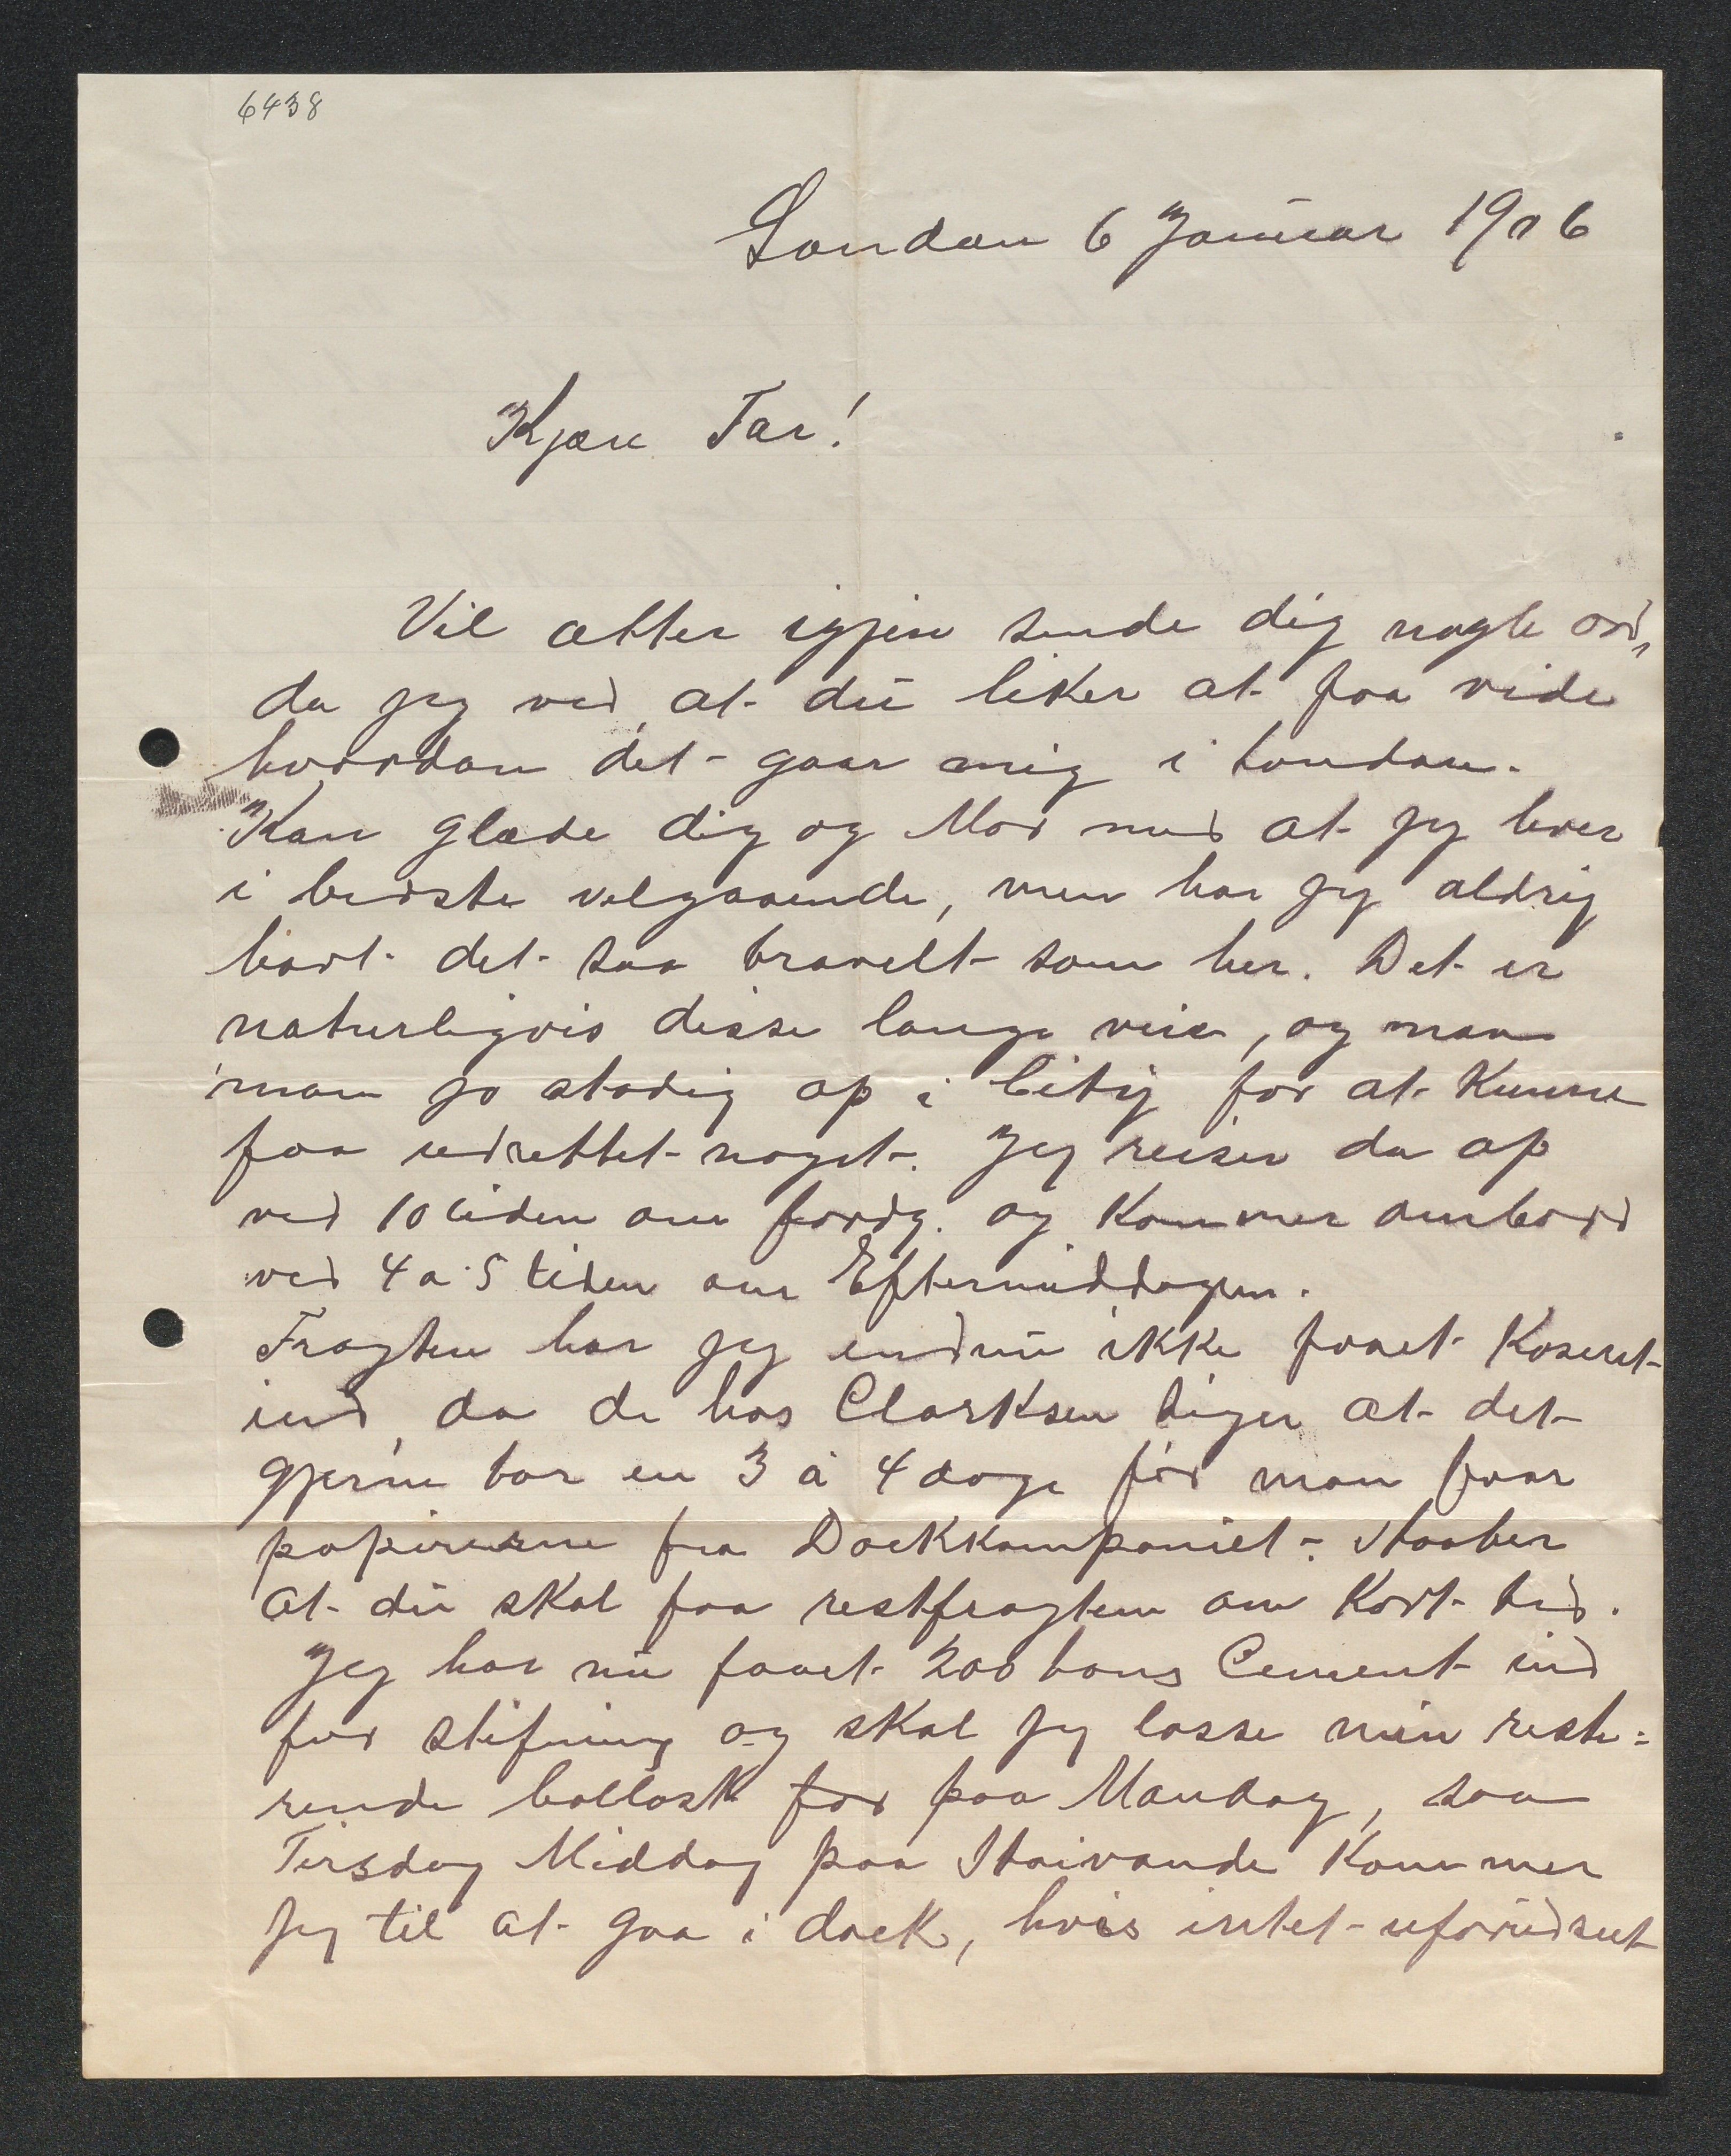 6438
London 6 Januar 1906
Kjære Far!
Vil atter igjen sende dig nogle ord,
da jeg ved, at du liker at faa vide
hvordan det gaar mig i London.
Kan glæde dig og Mor med at jeg lever
i bedste velgaaende, men har jeg aldrig
havt det saa travelt som her. Det er
naturligvis disse lange veie, og man
maa jo stadig op i City for at kunne
faa udrettet noget. Jeg reiser da op
ved 10 tiden om fordg. og kommer ombord
ved 4 a 5 tiden om Eftermiddagen.
Fragten har jeg endnu ikke faaet
ind, da de hos Clarksen siger at det
gjerne tar en 3 á 4 dage før man faar
papirerne fra Dockkompaniet. Haaber
at du skal faa restfragten om kort tid.
Jeg har nu faaet 200 tons Cement ind
for stifning og skal jeg losse min reste=
rende ballast for paa Mandag, saa
Tirsdag Middag paa Høivande kommer
jeg til at gaa i dock, hvis intet uforudseet